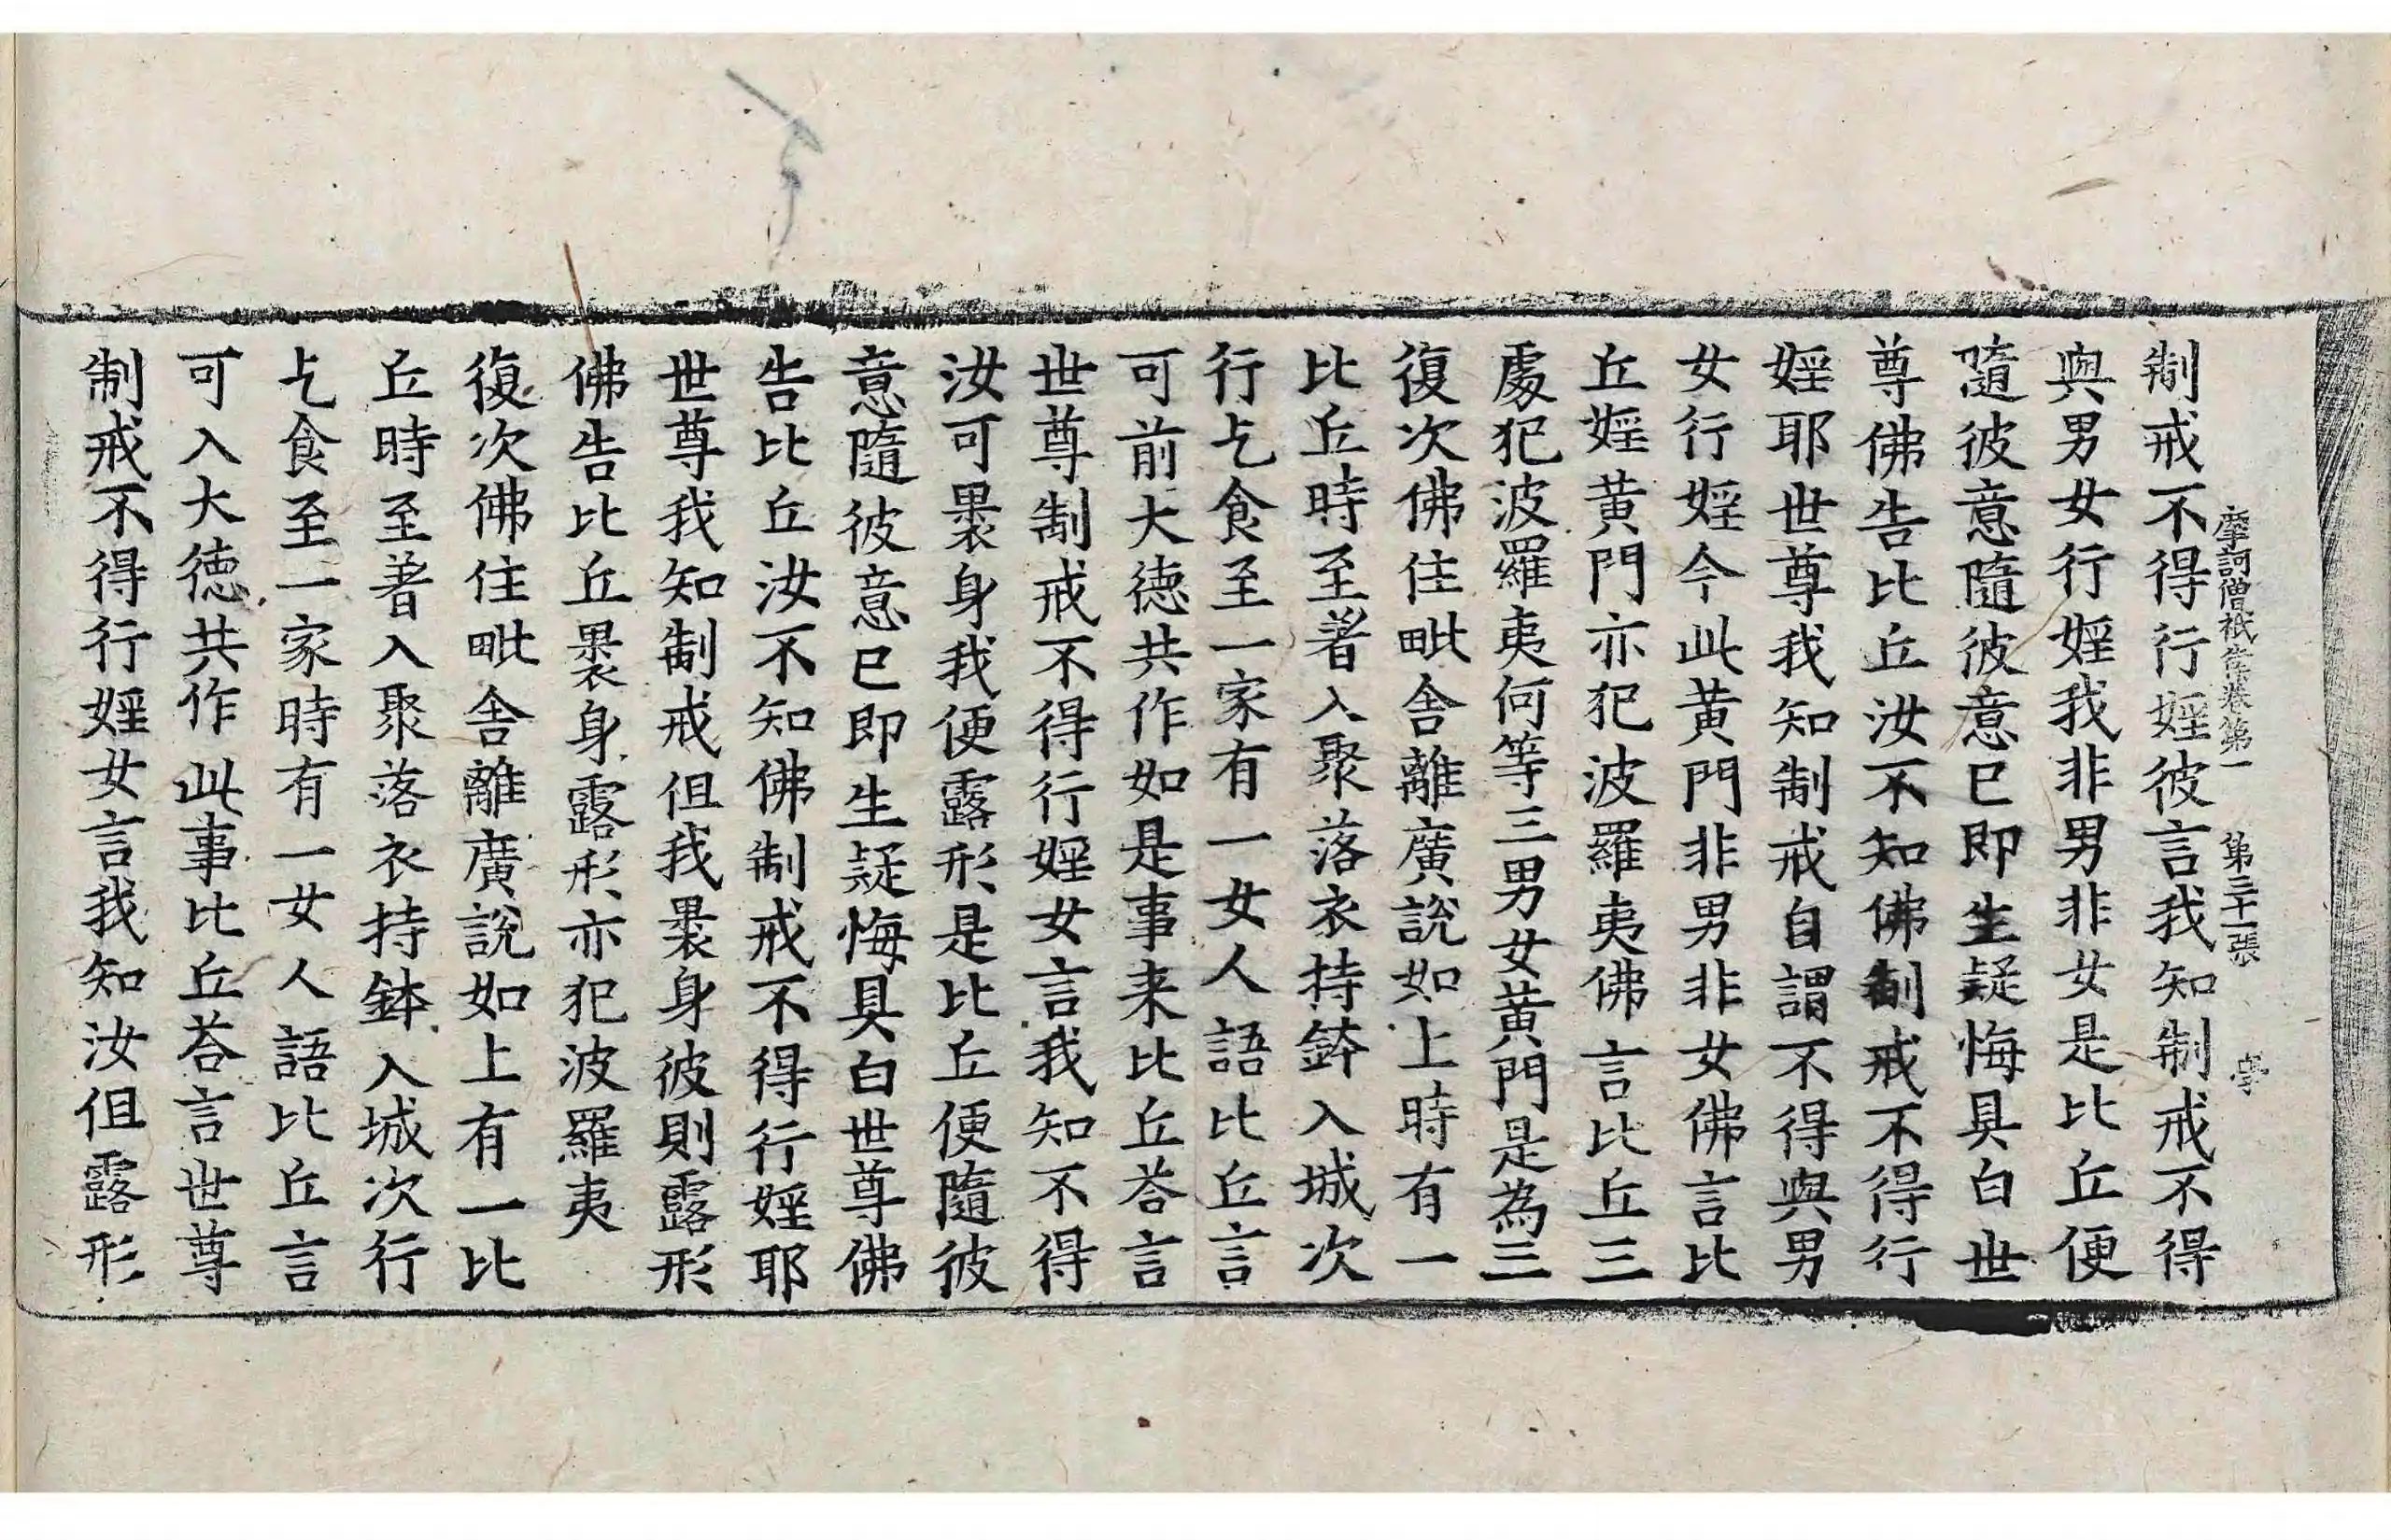 摩訶僧祇律卷第一 第三十一張 學
制戒不得行婬彼言我知制戒不得
與男女行婬我非男非女是比丘便
隨彼意隨彼意已即生疑悔具白世
尊佛告比丘汝不知佛制戒不得行
婬耶世尊我知制戒自謂不得與男
女行婬今此黃門非男非女佛言比
丘婬黃門亦犯波羅夷佛言比丘三
處犯波羅夷何等三男女黃門是為三
復次佛住毗舍離廣說如上時有一
比丘時至著入聚落衣持鉢入城次
行乞食至一家有一女人語比丘言
可前大德共作如是事来比丘荅言
世尊制戒不得行婬女言我知不得
汝可褁身我便露形是比丘便隨彼
意隨彼意已即生疑悔具白世尊佛
告比丘汝不知佛制戒不得行婬耶
世尊我知制戒但我褁身彼則露形
佛告比丘褁身露形亦犯波羅夷
復次佛住毗舍離廣說如上有一比
丘時至著入聚落衣持鉢入城次行
乞食至一家時有一女人語比丘言
可入大德共作此事比丘荅言世尊
制戒不得行婬女言我知汝但露形